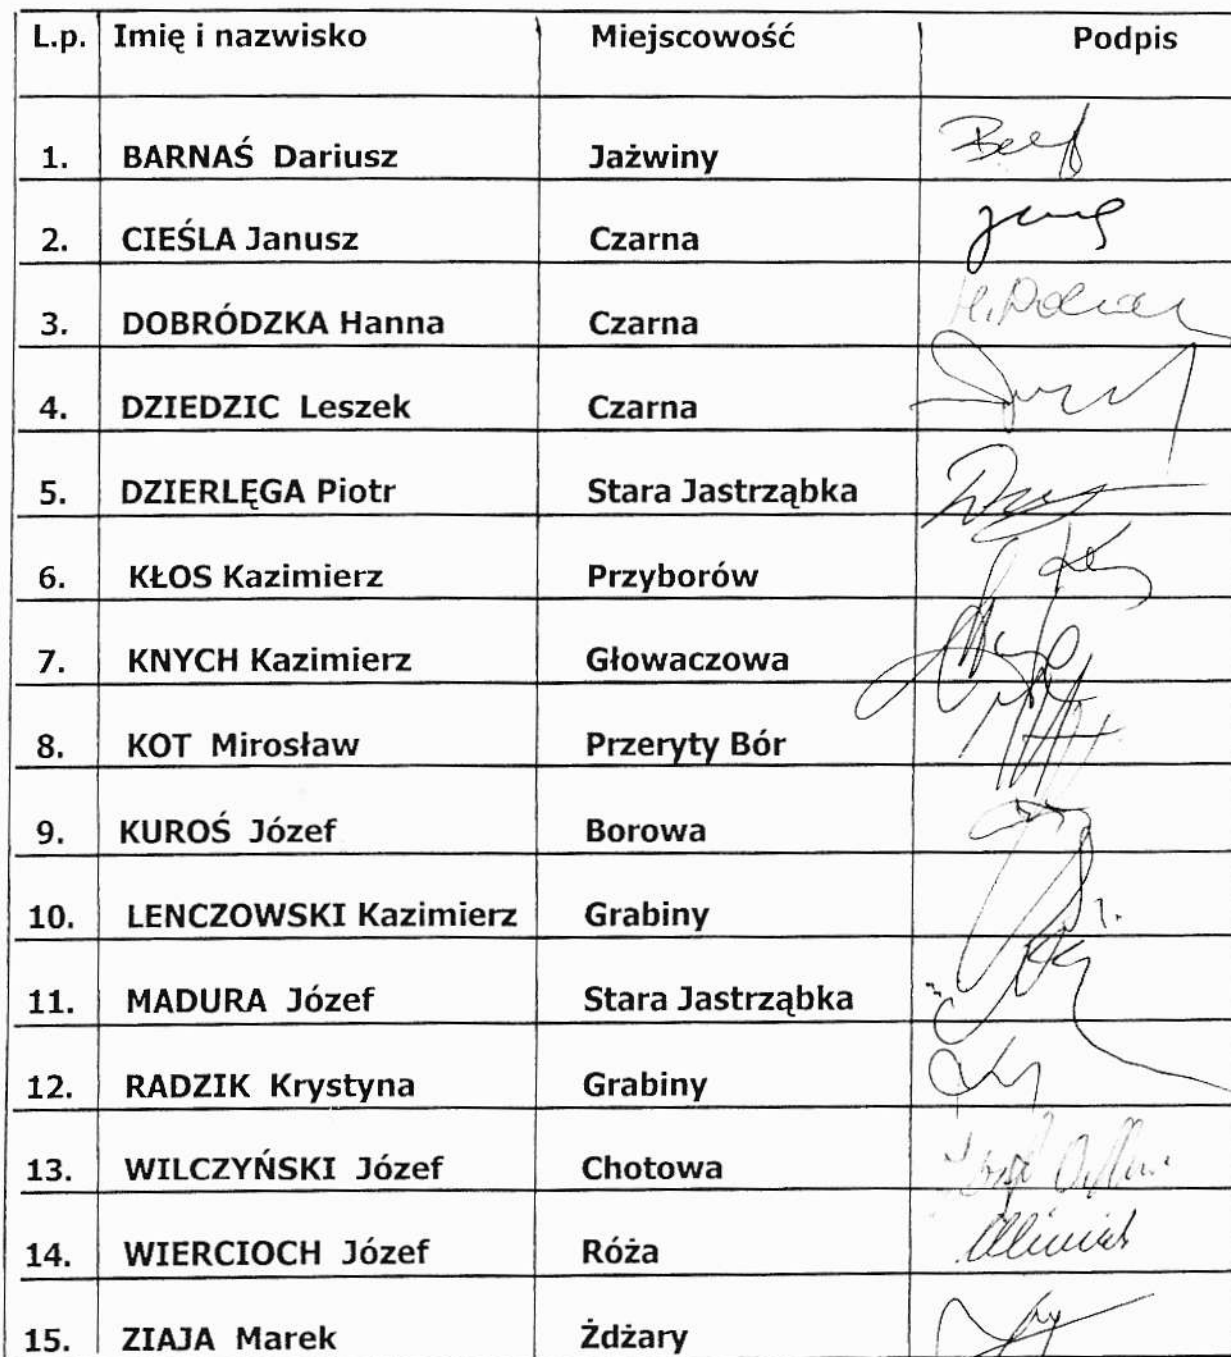 L.p. Imię i nazwisko Miejscowość Podpis
1. BARNAŚ Dariusz Jaźwiny
2. CIEŚLA Janusz Czarna
3. DOBRÓDZKA Hanna Czarna
4. DZIEDZIC Leszek Czarna
5. DZIERLĘGA Piotr Stara Jastrząbka
6. KŁOS Kazimierz Przyborów
7. KNYCH Kazimierz Głowaczowa
8. KOT Mirosław Przeryty Bór
9. KUROŚ Józef Borowa
10. LENCZOWSKI Kazimierz Grabiny
11. MADURA Józef Stara Jastrząbka
12. RADZIK Krystyna Grabiny
13. WILCZYŃSKI Józef Chotowa
14. WIERCIOCH Józef Róża
15. ZIAJA Marek Żdżary